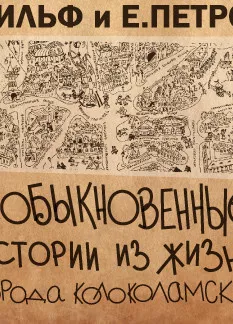 ИЛЬФ и Е.ПЕТРО
ОБЫКНОВЕННЫЕ
СТОРИИ ИЗ ЖИЗН
ОРОДА КОЛОКОЛАМСК